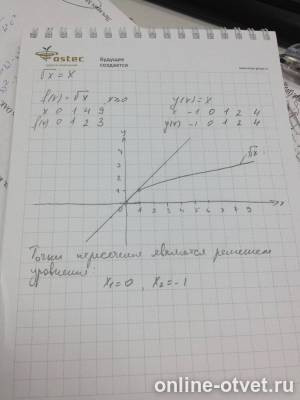 astec
Будущее
создается
√x = x
f(x) = √x x≥0 y(x) = x
x 0 1 4 9 x -1 0 1 2 4
f(x) 0 1 2 3 y(x) -1 0 1 2 4
y
√x
3
2
1
0 1 2 3 4 5 6 7 8 9 x
Точки пересечения являются решением
уравнения:
x₁=0 , x₂=-1
online-otvet.ru